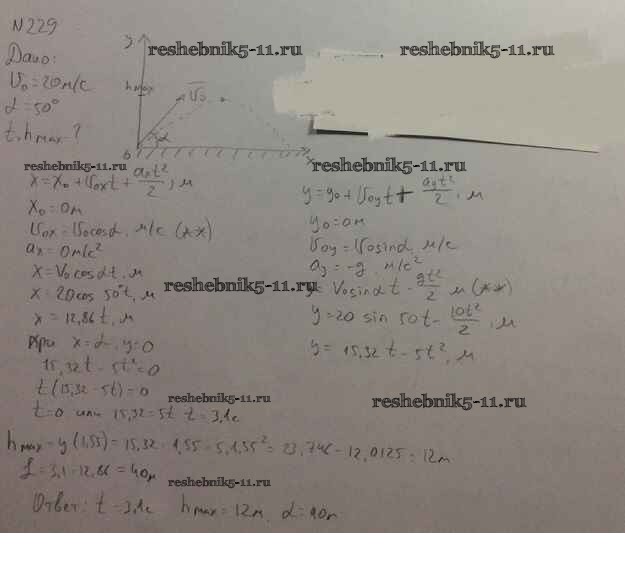 N229
Дано:
V₀=20м/с
α=50°
t, hmax?
y
hmax
V₀
α
0
x
reshebnik5-11.ru
reshebnik5-11.ru
reshebnik5-11.ru
reshebnik5-11.ru
x=x₀+V₀xt+axt²/2, м
x₀=0м
V₀x=V₀cosα, м/с (**)
ax=0м/с²
x=V₀cosαt, м
x=20cos 50°t, м
x=12,86t, м
при x=L, y=0
15,32t-5t²=0
t(15,32-5t)=0
t=0 или 15,32=5t t=3,1с
reshebnik5-11.ru
y=y₀+V₀yt+ayt²/2, м
y₀=0м
V₀y=V₀sinα, м/с
ay=-g, м/с²
y=V₀sinαt-gt²/2 м (**)
y=20 sin 50t-10t²/2, м
y=15,32t-5t², м
reshebnik5-11.ru
reshebnik5-11.ru
hmax=y(1,55)=15,32·1,55-5·1,55²=23,746-12,0125=12м
L=3,1·12,86=40м
reshebnik5-11.ru
Ответ: t=3,1с hmax=12м, L=40м